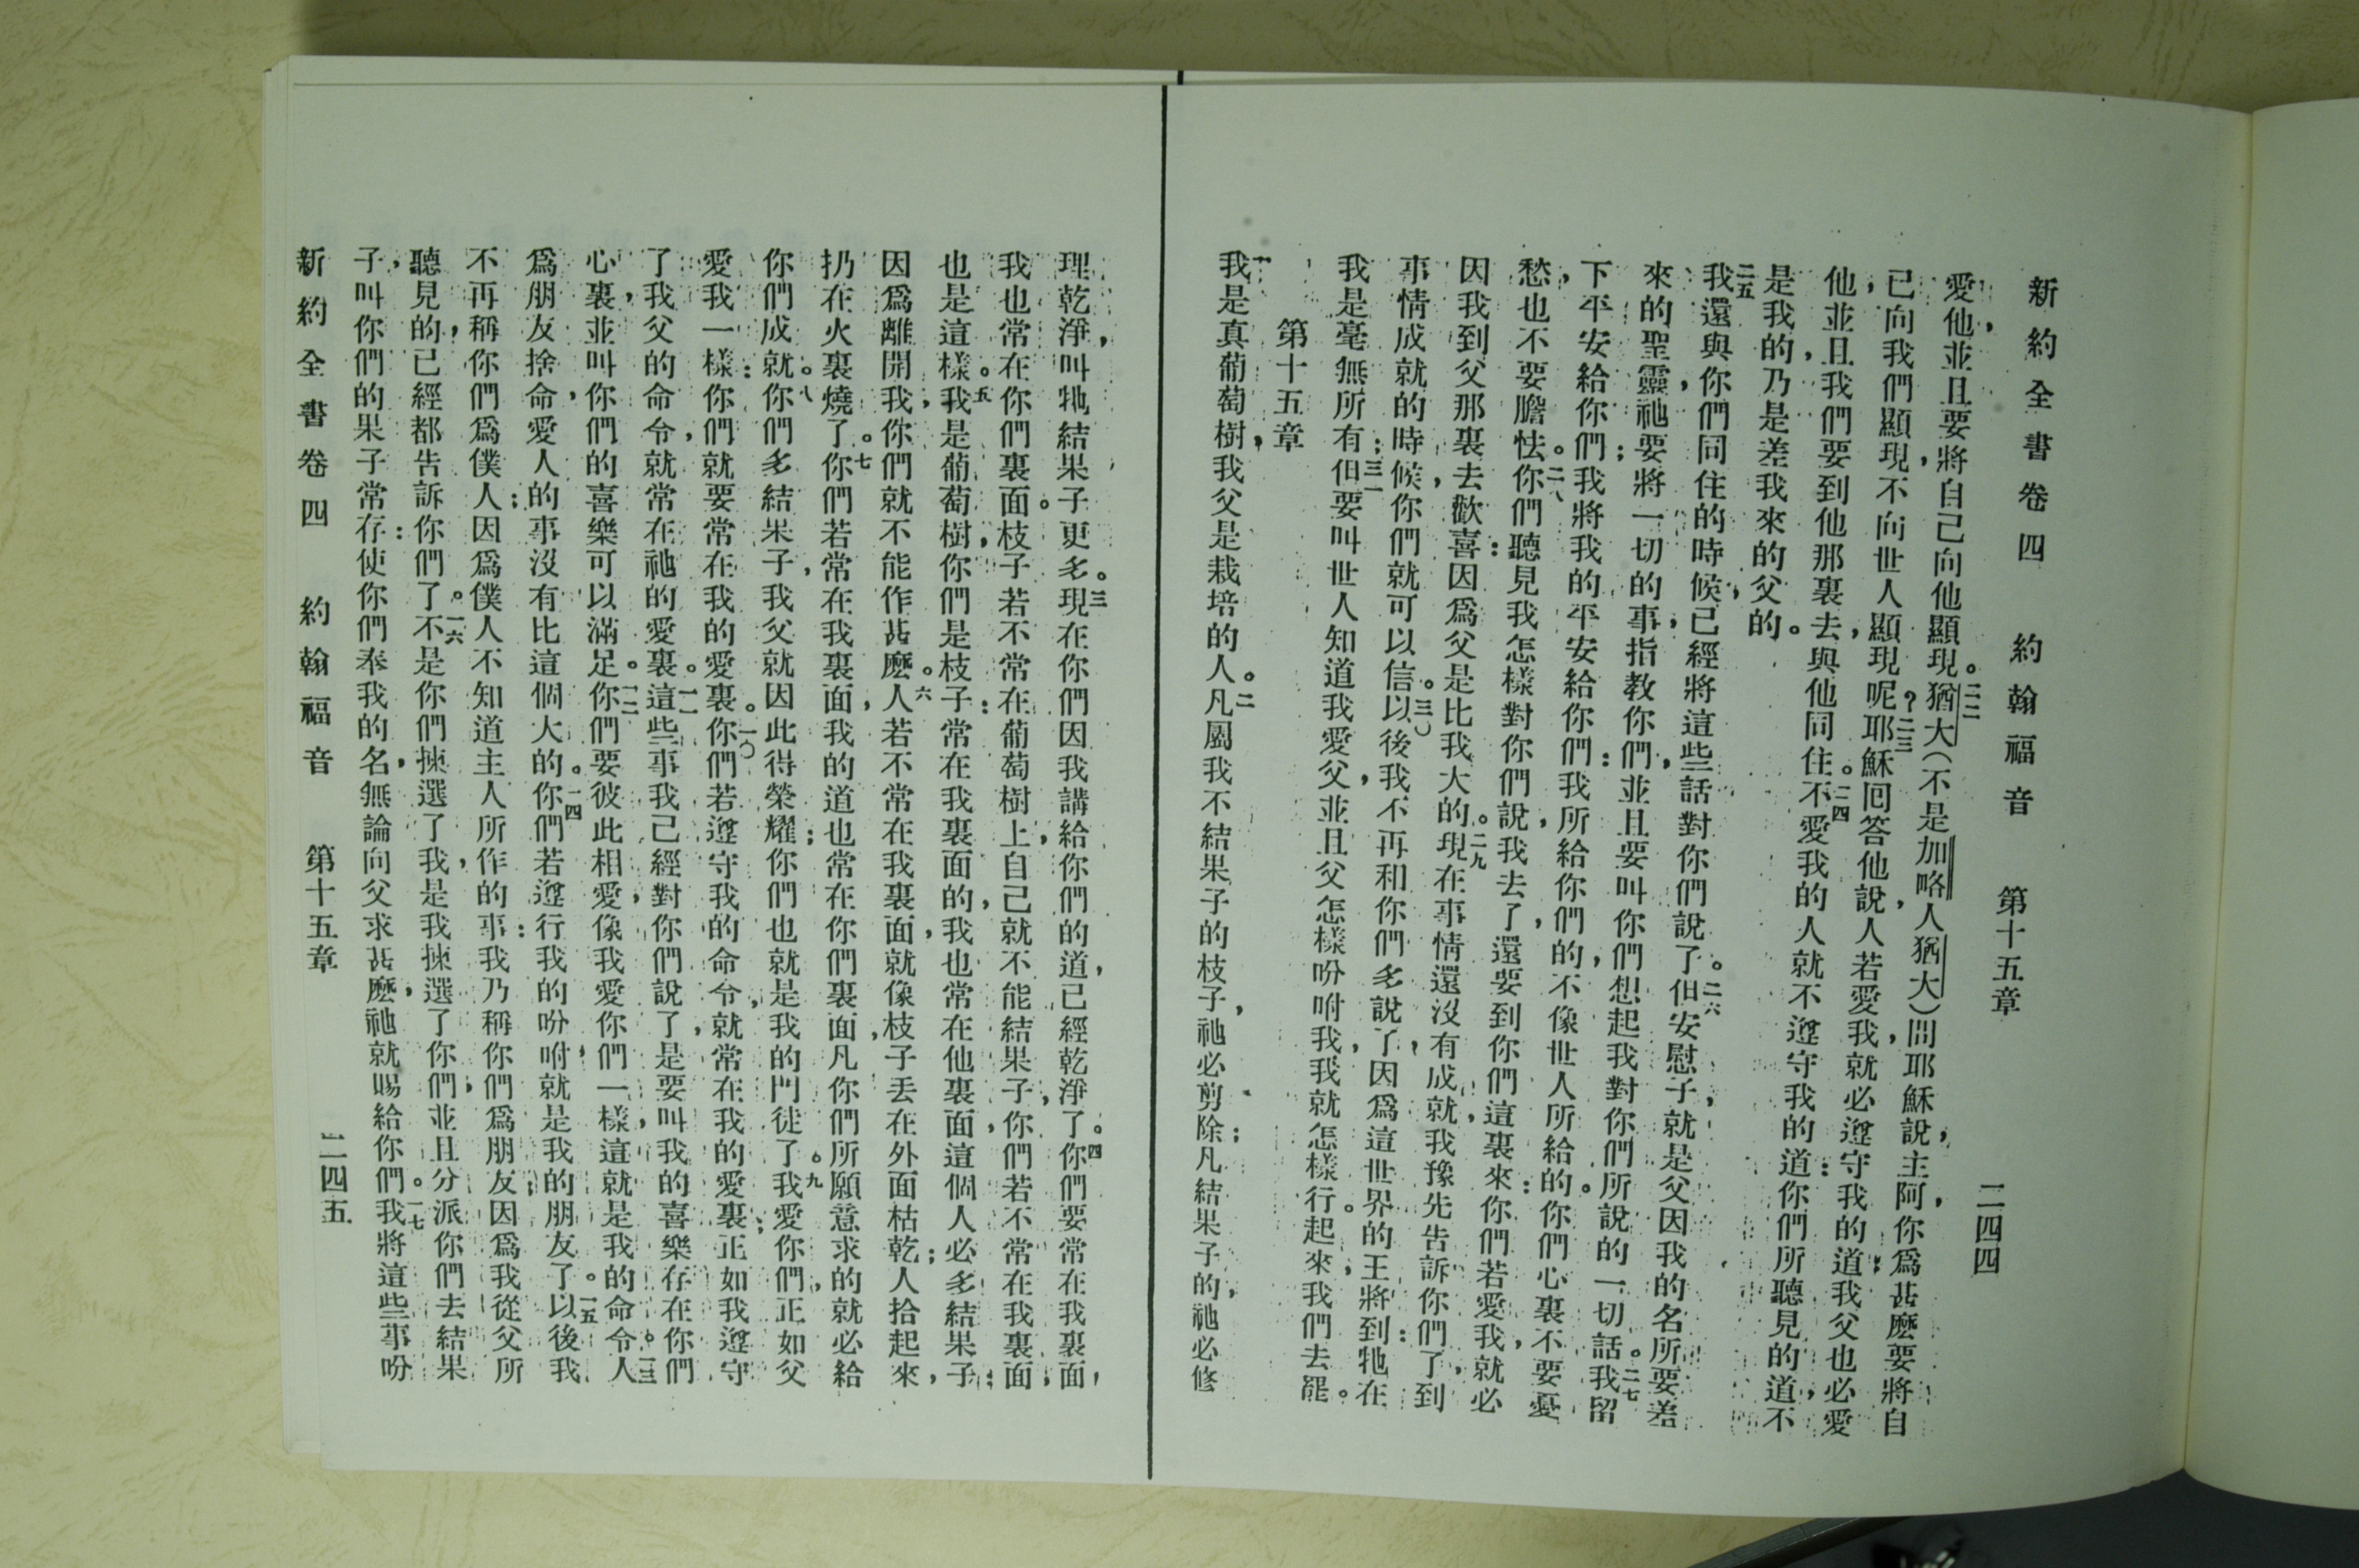 新約全書卷四　約翰福音　第十五章　二四四
愛他，並且要將自己向他顯現。二二猶大（不是加略人猶大）問耶穌說，主阿，你爲甚麽要將自
己向我們顯現，不向世人顯現呢？二三耶穌囘答他說，人若愛我，就必遵守我的道；我父也必愛
他，並且我們要到他那裏去，與他同住。二四不愛我的人就不遵守我的道：你們所聽見的道，不
是我的，乃是差我來的父的。
二五我還與你們同住的時候，已經將這些話對你們說了。二六但安慰子，就是父因我的名所要差
來的聖靈，祂要將一切的事，指教你們，並且要叫你們想起我對你們所說的一切話。二七我留
下平安給你們；我將我的平安給你們：我所給你們的，不像世人所給的。你們心裏不要憂
愁，也不要膽怯。二八你們聽見我怎樣對你們說，我去了，還要到你們這裏來：你們若愛我，就必
因我到父那裏去歡喜：因爲父是比我大的。二九現在事情還沒有成就，我豫先告訴你們了，到
事情成就的時候，你們就可以信。三〇以後我不再和你們多說了，因爲這世界的王將到：牠在
我是毫無所有；三一但要叫世人知道我愛父，並且父怎樣吩咐我，我就怎樣行。起來，我們去罷。
第十五章
一我是真葡萄樹，我父是栽培的人。二凡屬我不結果子的枝子，祂必剪除；凡結果子的，祂必修
理乾淨，叫牠結果子更多。三現在你們因我講給你們的道，已經乾淨了。四你們要常在我裏面，
我也常在你們裏面。枝子若不常在葡萄樹上，自己就不能結果子，你們若不常在我裏面，
也是這樣。五我是葡萄樹，你們是枝子：常在我裏面的，我也常在他裏面，這個人必多結果子；
因爲離開我，你們就不能作甚麽。六人若不常在我裏面，就像枝子丟在外面枯乾；人拾起來，
扔在火裏燒了。七你們若常在我裏面，我的道也常在你們裏面，凡你們所願意求的，就必給
你們成就。八你們多結果子，我父就因此得榮耀；你們也就是我的門徒了。九我愛你們，正如父
愛我一樣：你們就要常在我的愛裏。一〇你們若遵守我的命令，就常在我的愛裏；正如我遵守
了我父的命令，就常在祂的愛裏。一一這些事我已經對你們說了，是要叫我的喜樂存在你們
心裏，並叫你們的喜樂可以滿足。一二你們要彼此相愛，像我愛你們一樣，這就是我的命令。一三人
爲朋友捨命，愛人的事沒有比這個大的。一四你們若遵行我的吩咐，就是我的朋友了。一五以後我
不再稱你們爲僕人；因爲僕人不知道主人所作的事：我乃稱你們爲朋友；因爲我從父所
聽見的，已經都告訴你們了。一六不是你們揀選了我，是我揀選了你們，並且分派你們去結果
子，叫你們的果子常存：使你們奉我的名，無論向父求甚麽，祂就賜給你們。一七我將這些事吩
新約全書卷四　約翰福音　第十五章　二四五